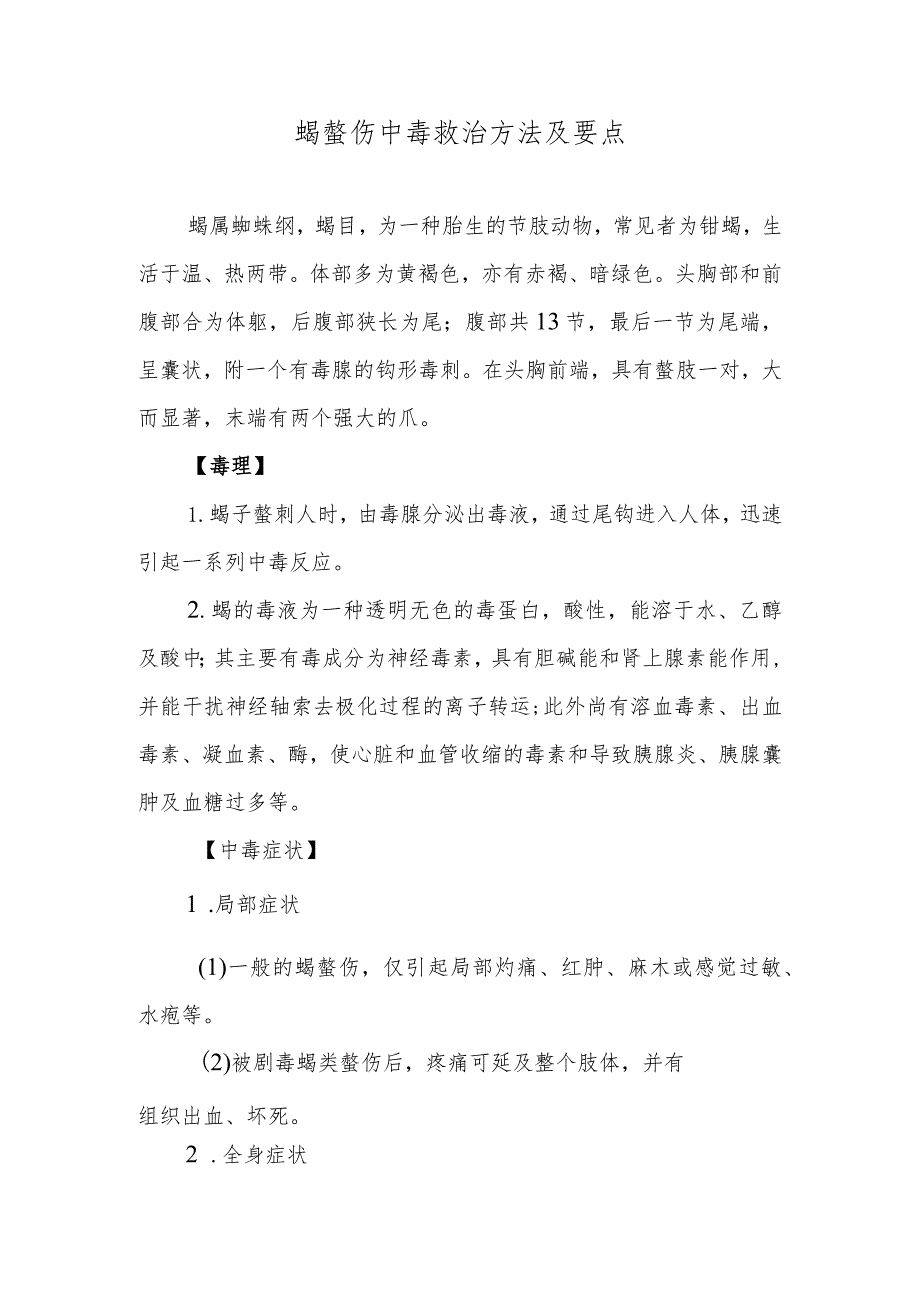 蝎螫伤中毒救治方法及要点
蝎属蜘蛛纲，蝎目，为一种胎生的节肢动物，常见者为钳蝎，生
活于温、热两带。体部多为黄褐色，亦有赤褐、暗绿色。头胸部和前
腹部合为体躯，后腹部狭长为尾；腹部共 13 节，最后一节为尾端，
呈囊状，附一个有毒腺的钩形毒刺。在头胸前端，具有螯肢一对，大
而显著，末端有两个强大的爪。
【毒理】
1. 蝎子螫刺人时，由毒腺分泌出毒液，通过尾钩进入人体，迅速
引起一系列中毒反应。
2. 蝎的毒液为一种透明无色的毒蛋白，酸性，能溶于水、乙醇
及酸中；其主要有毒成分为神经毒素，具有胆碱能和肾上腺素能作用，
并能干扰神经轴索去极化过程的离子转运；此外尚有溶血毒素、出血
毒素、凝血素、酶，使心脏和血管收缩的毒素和导致胰腺炎、胰腺囊
肿及血糖过多等。
【中毒症状】
1 .局部症状
(1)一般的蝎螫伤，仅引起局部灼痛、红肿、麻木或感觉过敏、
水疱等。
(2)被剧毒蝎类螫伤后，疼痛可延及整个肢体，并有
组织出血、坏死。
2 .全身症状